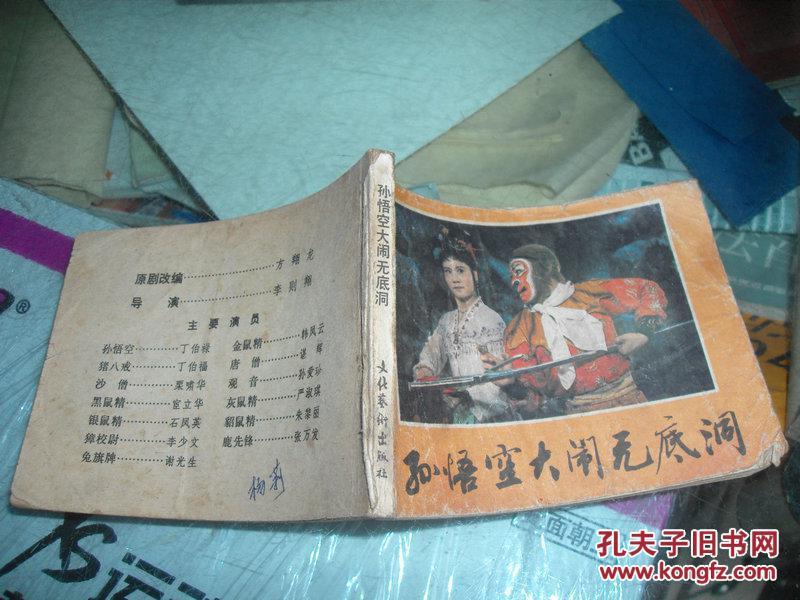 原剧改编………方翔龙
导演………李则翔
主要演员
孙悟空……丁伯禄 金鼠精……韩凤云
猪八戒……丁伯福 唐僧……谌辉
沙僧……栗啸华 观音……孙爱珍
黑鼠精……宦立华 灰鼠精……严淑琪
银鼠精……石凤英 貂鼠精……朱黎丽
獐校尉……李少文 鹿先锋……张万发
兔旗牌……谢光生
孙悟空大闹无底洞
文化艺术出版社
孙悟空大闹无底洞
面朝
孔夫子旧书网
www.kongfz.com